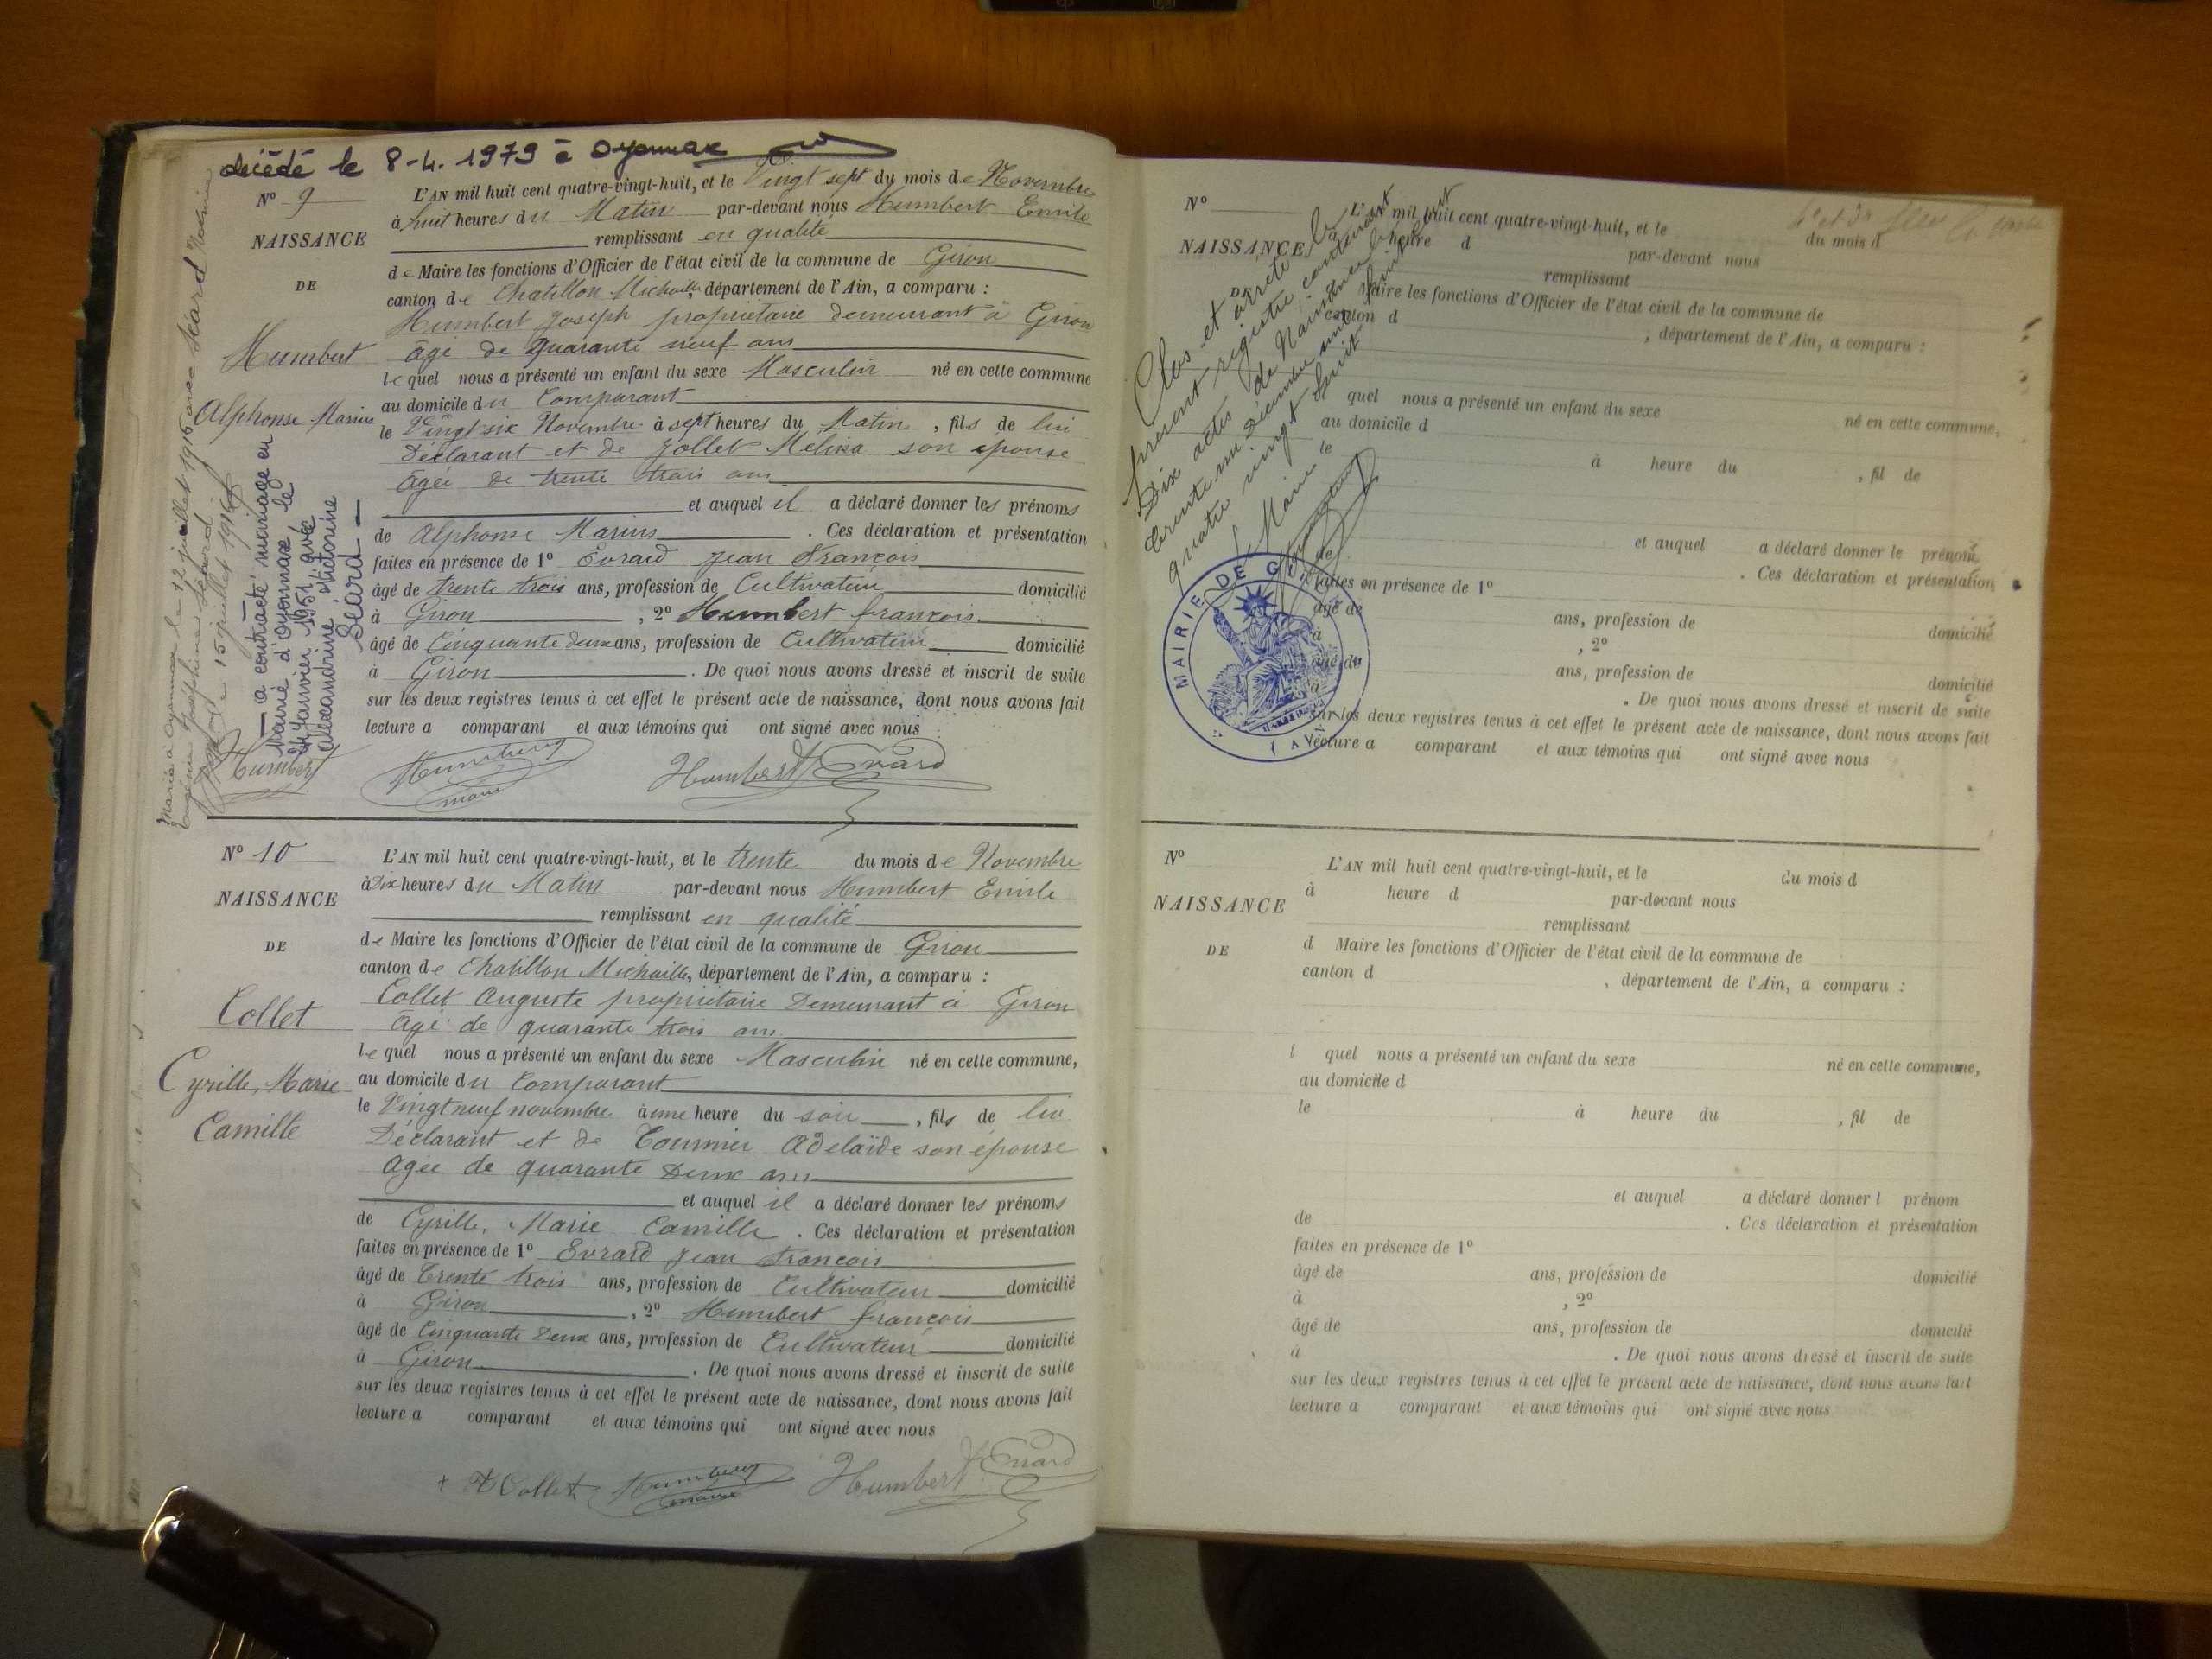 décédé le 8-4. 1979 à Oyonnax
N° 9
NAISSANCE
DE
Humbert
Alphonse Marius
L'AN mil huit cent quatre-vingt-huit, et le Vingt sept du mois de Novembre
à huit heures du Matin par-devant nous Humbert Emile
remplissant en qualité
de Maire les fonctions d'Officier de l'état civil de la commune de Giron
canton de Chatillon Michaille, département de l'Ain, a comparu :
Humbert Joseph propriétaire demeurant à Giron
âgé de quarante neuf ans
lequel nous a présenté un enfant du sexe Masculin né en cette commune
au domicile du Comparant
le Vingt six Novembre à sept heures du Matin, fils de lui
Déclarant et de Jollet Melina son épouse
âgée de trente trois ans
et auquel il a déclaré donner les prénoms
de Alphonse Marius . Ces déclaration et présentation
faites en présence de 1° Evrard Jean François
âgé de trente trois ans, profession de Cultivateur domicilié
à Giron , 2° Humbert françois
âgé de Cinquante deux ans, profession de Cultivateur domicilié
à Giron . De quoi nous avons dressé et inscrit de suite
sur les deux registres tenus à cet effet le présent acte de naissance, dont nous avons fait
lecture a comparant et aux témoins qui ont signé avec nous
Humbert
Humbert
maire
Humbert Evrard
Marié à Oyonnax le 12 juillet 1916 avec Séard
15 juillet 1916
— a contracté mariage en
Mairie d'Oyonnax le
Janvier 1951 avec
Alexandrine Victorine
Séard —
N° 10
NAISSANCE
DE
Collet
Cyrille, Marie
Camille
L'AN mil huit cent quatre-vingt-huit, et le trente du mois de Novembre
à Dix heures du Matin par-devant nous Humbert Emile
remplissant en qualité
de Maire les fonctions d'Officier de l'état civil de la commune de Giron
canton de Chatillon Michaille, département de l'Ain, a comparu :
Collet Auguste propriétaire Demeurant à Giron
âgé de quarante trois ans
lequel nous a présenté un enfant du sexe Masculin né en cette commune,
au domicile du Comparant
le Vingt neuf novembre à une heure du soir , fils de lui
Déclarant et de Tournier Adelaïde son épouse
agée de quarante Deux ans
et auquel il a déclaré donner les prénoms
de Cyrille, Marie Camille . Ces déclaration et présentation
faites en présence de 1° Evrard Jean François
âgé de Trente trois ans, profession de Cultivateur domicilié
à Giron , 2° Humbert françois
âgé de Cinquante Deux ans, profession de Cultivateur domicilié
à Giron . De quoi nous avons dressé et inscrit de suite
sur les deux registres tenus à cet effet le présent acte de naissance, dont nous avons fait
lecture a comparant et aux témoins qui ont signé avec nous
+ A Collet Humbert Humbert Evrard
maire
N°
NAISSANCE
DE
L'AN mil huit cent quatre-vingt-huit, et le du mois d
à heure d par-devant nous
remplissant
d Maire les fonctions d'Officier de l'état civil de la commune de
canton d , département de l'Ain, a comparu :
quel nous a présenté un enfant du sexe né en cette commune,
au domicile d
le à heure du , fil de
et auquel a déclaré donner le prénom
de . Ces déclaration et présentation
faites en présence de 1°
âgé de ans, profession de domicilié
à , 2°
âgé de ans, profession de domicilié
à . De quoi nous avons dressé et inscrit de suite
sur les deux registres tenus à cet effet le présent acte de naissance, dont nous avons fait
lecture a comparant et aux témoins qui ont signé avec nous
Clos et arrêté le
présent registre contenant
Dix actes de Naissance
trente un Décembre mil huit cent
quatre vingt huit
Le Maire
MAIRIE DE GIRON
(AIN)
N°
NAISSANCE
DE
L'AN mil huit cent quatre-vingt-huit, et le du mois d
à heure d par-devant nous
remplissant
d Maire les fonctions d'Officier de l'état civil de la commune de
canton d , département de l'Ain, a comparu :
l quel nous a présenté un enfant du sexe né en cette commune,
au domicile d
le à heure du , fil de
et auquel a déclaré donner l prénom
de . Ces déclaration et présentation
faites en présence de 1°
âgé de ans, profession de domicilié
à , 2°
âgé de ans, profession de domicilié
à . De quoi nous avons dressé et inscrit de suite
sur les deux registres tenus à cet effet le présent acte de naissance, dont nous avons fait
lecture a comparant et aux témoins qui ont signé avec nous